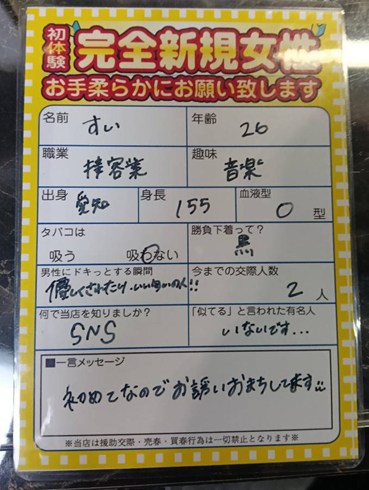 初体験 完全新規女性
お手柔らかにお願い致します
名前 すい 年齢 26
職業 接客業 趣味 音楽
出身 愛知 身長 155 血液型 O 型
タバコは 勝負下着って?
吸う 吸わない 黒
男性にドキっとする瞬間 今までの交際人数
優しくされたり、いい匂いの人!! 2 人
何で当店を知りましたか? 「似てる」と言われた有名人
SNS いないです...
■一言メッセージ
初めてなのでお誘いおまちしてます
※当店は援助交際・売春・買春行為は一切禁止となります※